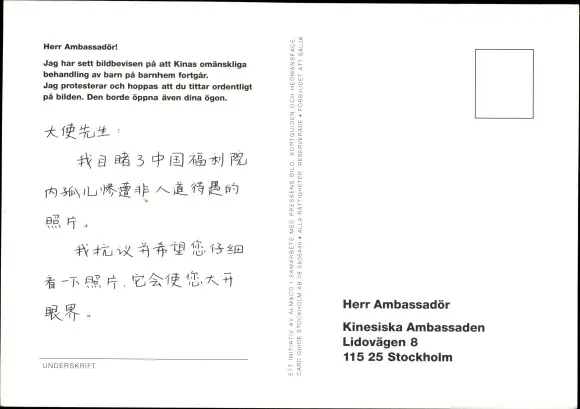 Herr Ambassadör!
Jag har sett bildbevisen på att Kinas omänskliga
behandling av barn på barnhem fortgår.
Jag protesterar och hoppas att du tittar ordentligt
på bilden. Den borde öppna även dina ögon.
大使先生：
我目睹了中国福利院
内孤儿惨遭非人道待遇的
照片。
我抗议并希望您仔细
看一下照片，它会使您大开
眼界。
UNDERSKRIFT
ETT INITIATIV AV ALMACO I SAMARBETE MED PRESSENS BILD, KORTGUIDEN OCH HEDMANSFACE.
CARD GUIDE STOCKHOLM AB 08 6606449 • ALLA RÄTTIGHETER RESERVERADE • FÖRBJUDET ATT SÄLJA
Herr Ambassadör
Kinesiska Ambassaden
Lidovägen 8
115 25 Stockholm